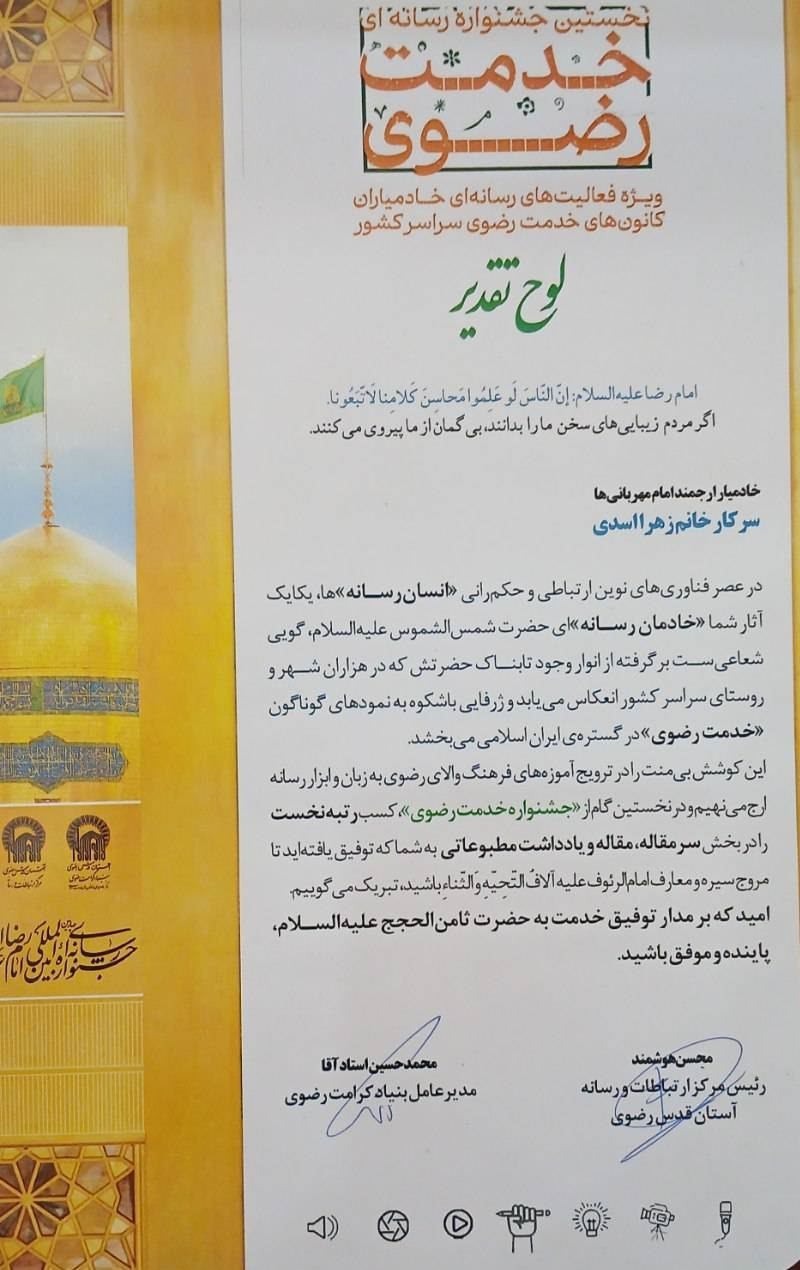 نخستین جشنواره رسانه ای
خدمت
رضوی
ویژه فعالیت‌های رسانه‌ای خادمیاران
کانون‌های خدمت رضوی سراسر کشور
لوح تقدیر
امام رضا علیه‌السلام: إنّ النّاسَ لَو عَلِمُوا مَحاسِنَ کَلامِنا لَاتَّبَعُونا.
اگر مردم زیبایی‌های سخن ما را بدانند، بی‌گمان از ما پیروی می‌کنند.
خادمیار ارجمند امام مهربانی‌ها
سرکار خانم زهرا اسدی
در عصر فناوری‌های نوین ارتباطی و حکم‌رانی «انسان رسانه»ها، یکایک
آثار شما «خادمان رسانه»ای حضرت شمس‌الشموس علیه‌السلام، گویی
شعاعی‌ست برگرفته از انوار وجود تابناک حضرتش که در هزاران شهر و
روستای سراسر کشور انعکاس می‌یابد و ژرفایی باشکوه به نمودهای گوناگون
«خدمت رضوی» در گستره‌ی ایران اسلامی می‌بخشد.
این کوشش بی‌منت را در ترویج آموزه‌های فرهنگ والای رضوی به زبان و ابزار رسانه
ارج می‌نهیم و در نخستین گام از «جشنواره خدمت رضوی»، کسب رتبه نخست
را در بخش سرمقاله، مقاله و یادداشت مطبوعاتی به شما که توفیق یافته‌اید تا
مروج سیره و معارف امام الرئوف علیه آلافُ التّحیّهِ وَالثَّناءِ باشید، تبریک می‌گوییم.
امید که بر مدار توفیق خدمت به حضرت ثامن‌الحجج علیه‌السلام،
پاینده و موفق باشید.
محسن هوشمند
رئیس مرکز ارتباطات و رسانه
آستان قدس رضوی
محمدحسین استادآقا
مدیرعامل بنیاد کرامت رضوی